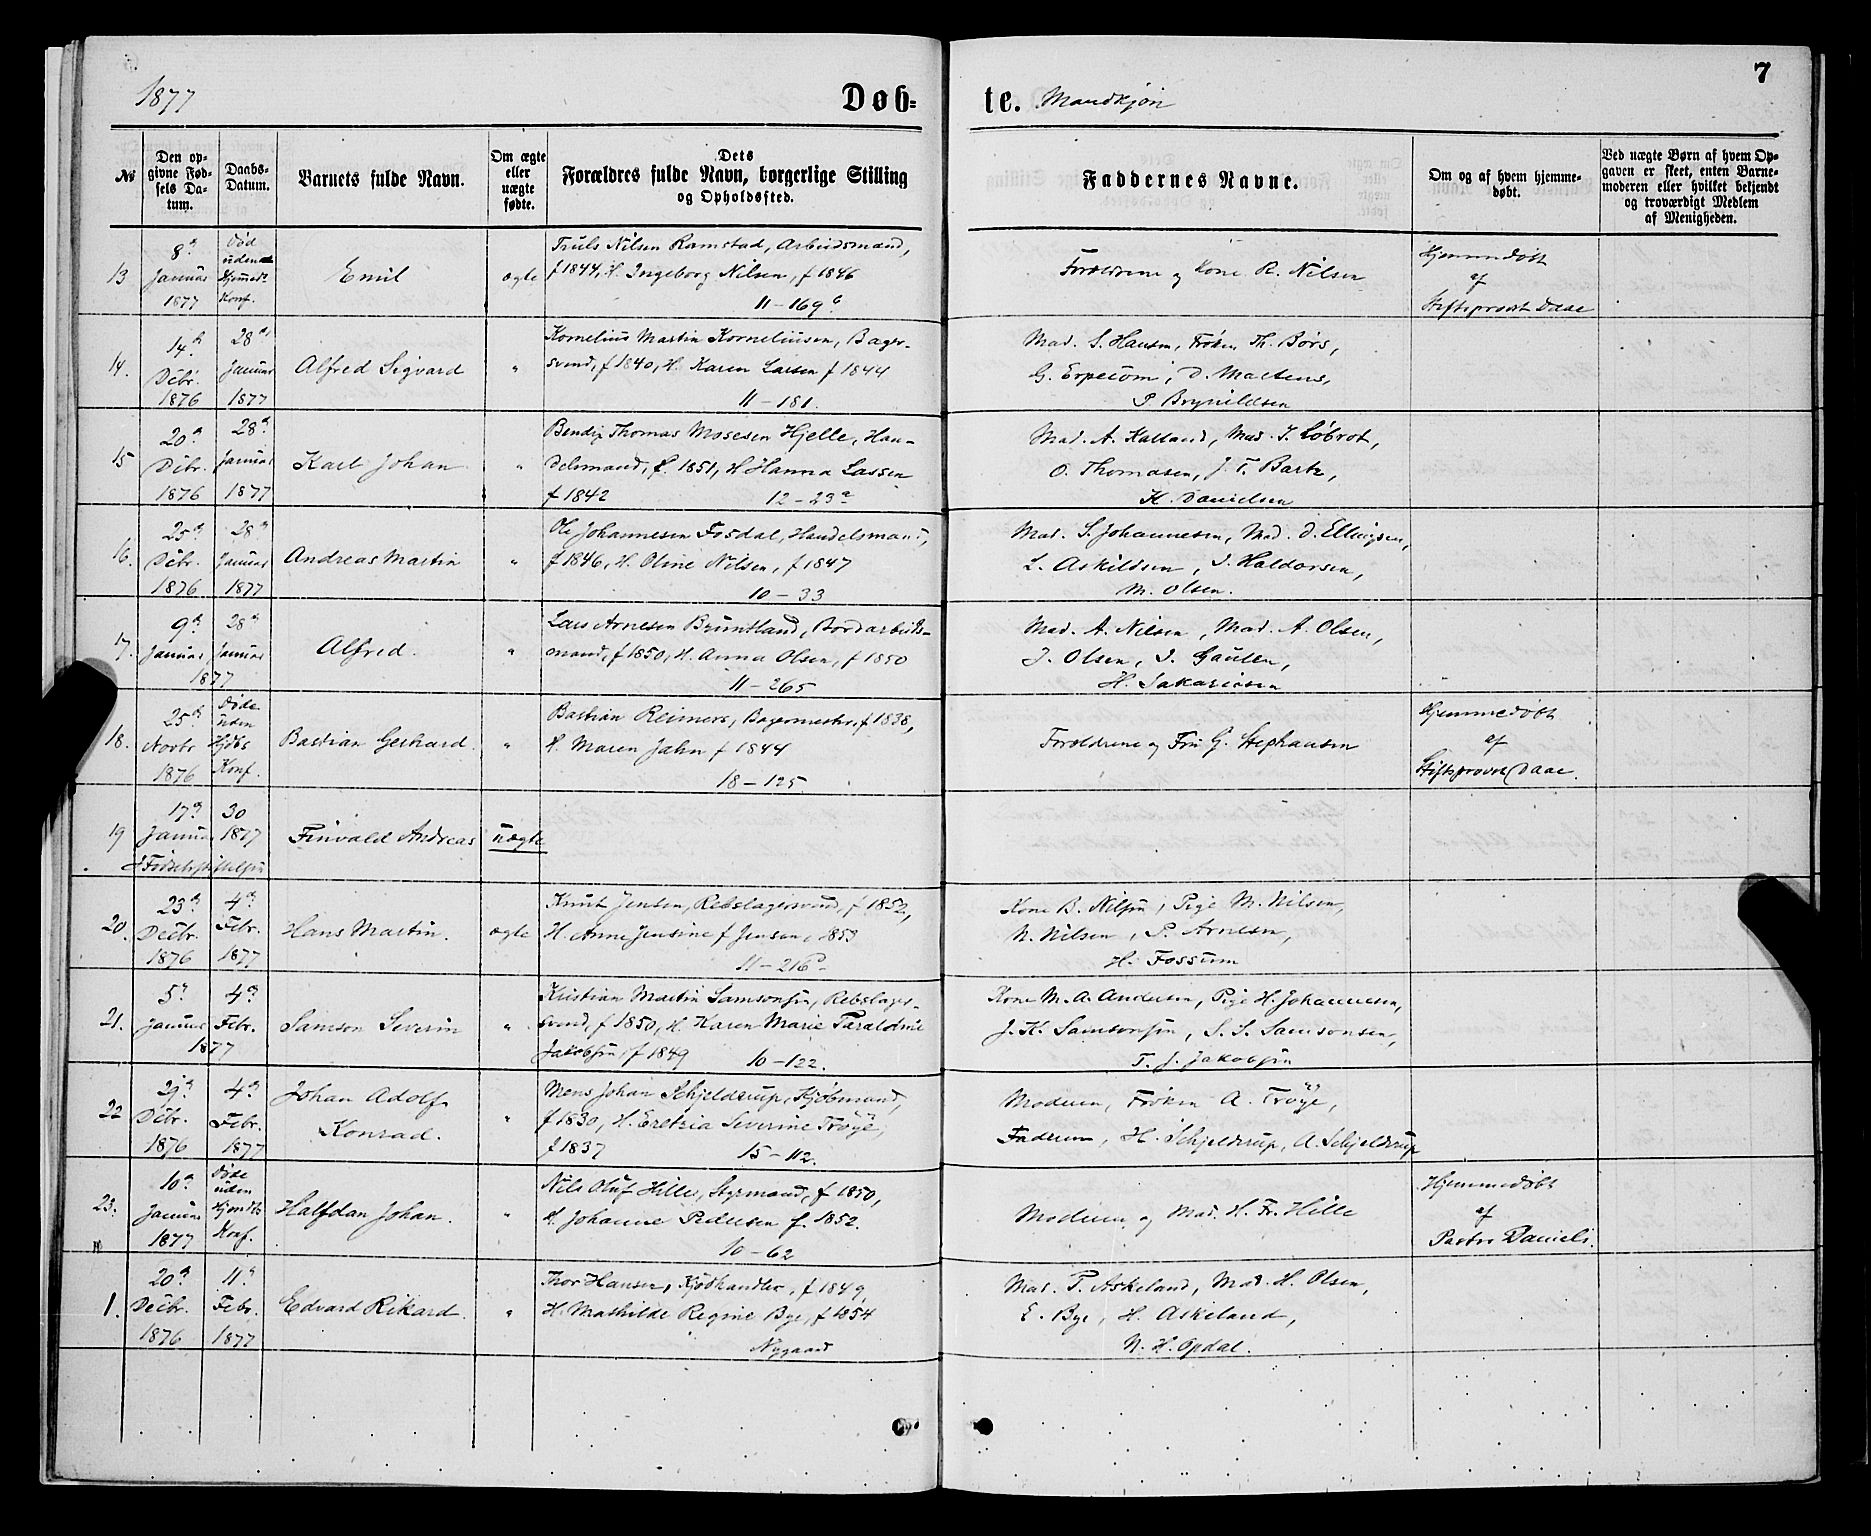 1877
Døb-
te. Mandkjøn
7
No
Den op-
givne Fød-
sels Da-
tum.
Daabs-
Datum.
Barnets fulde Navn.
Om ægte
eller
uægte
fødte.
Dets
Forældres fulde Navn, borgerlige Stilling
og Opholdssted.
Faddernes Navne.
Om og af hvem hjemme-
døbt.
Ved uægte Børn af hvem Op-
gaven er skeet, enten Barne-
moderen eller hvilket bekjendt
og troværdigt Medlem
af Menigheden.
13
8de
Januar
1877
Død
uden
Konf.
Emil
ægte
Truls Nilsen Ramstad, Arbeidsmand,
f 1844, H. Ingeborg Nilsen, f 1846
11-169b
Forældrene og Kone R. Nilsen
Hjemmedøbt
af
Stiftsprovst Daae
14.
14de
Debr.
1876
28de
Januar
1877
Alfred Sigvard
"
Kornelius Martin Korneliussen, Bager-
svend, f 1840, H. Karen Larsen f 1844
11-181.
Mad. S. Hansen, Frøken Th. Børs,
G. Erpecom, D. Martens,
P. Brynildsen
15
20de
Debr.
1876
28de
Januar
1877
Karl Johan
"
Bendix Thomas Mosesen Hjelle, Han-
delsmand, f. 1851, H Hanna Lassen
f 1842 12-23a
Mad. A. Kalland, Mad. I. Løbrot,
O. Thomasen, J. T. Bartz,
K. Danielsen
16.
25de
Debr.
1876
28de
Januar
1877
Andreas Martin
"
Ole Johannesen Fosdal, Handelsmand,
f 1846, H. Oline Nilsen, f 1847
10-33
Mad. S. Johannesen, Mad. D. Ellingsen,
L. Askildsen, I. Haldorsen,
M. Olsen.
17.
9de
Januar
28de
Januar
1877
Alfred.
"
Lars Arnesen Bruntland, Bordarbeids-
mand, f 1850, H. Anna Olsen, f 1850
11-265
Mad. A. Nilsen, Mad. A. Olsen,
J. Olsen, I. Gausen,
H. Sakariasen
18.
25de
Novbr
1876
Døde
uden
Hjdbs
Konf.
Bastian Gerhard.
"
Bastian Reimers, Bagermester, f 1838,
H. Maren Jahn f 1844
18-125
Forældrene og Fru G. Stephansen
Hjemmedøbt
af
Stiftsprovst Daae.
19
17de
Januar
30
1877
Finvald Andreas
uægte
Fødselsstiftelsen
20.
23de
Decbr.
1876
4de
Febr.
1877
Hans Martin.
ægte
Knut Jensen, Rebslagersvend, f 1852,
H. Anne Jensine f Jensen, 1853
11-216b
Kone B. Nilsen, Pige M. Nilsen,
N. Nilsen, P. Arnesen,
H. Fossum
21.
5te
Januar
4de
Febr.
1877
Samson Severin
"
Kristian Martin Samsonsen, Rebslager-
svend, f 1850, H. Karen Marie Taraldine
Jakobsen, f 1849 10-122.
Kone M. A. Andersen, Pige H. Johannesen,
J. K. Samsonsen, S. S. Samsonsen,
T. J. Jakobsen
22
29de
Debr.
1876
4de
Febr.
1877
Johan Adolf
Konrad.
"
Mens Johan Schjelderup, Kjøbmand,
f 1830, H. Eretzia Severine Trøye,
f 1837 15-112.
Moderen, Frøken A. Trøye,
Faderen, H. Schjelderup, A. Schjelderup
23.
10de
Januar
1877
Døde
uden
Konf.
Halfdan Johan.
"
Nils Oluf Hille, Styrmand, f 1850,
H. Johanne Pedersen f. 1852.
10-62
Moderen og Mad. H. Fr. Hille
Hjemmedøbt
af
Pastor Daniels.
1.
20de
Decbr.
1876
11te
Febr.
1877
Edvard Rikard.
"
Thor Hansen, Kjødhandler, f 1849,
H. Mathilde Regine Bye, f 1854
Nygaard
Mad. P. Askeland, Mad. H. Olsen,
E. Bye, H. Askeland,
N. H. Opdal.